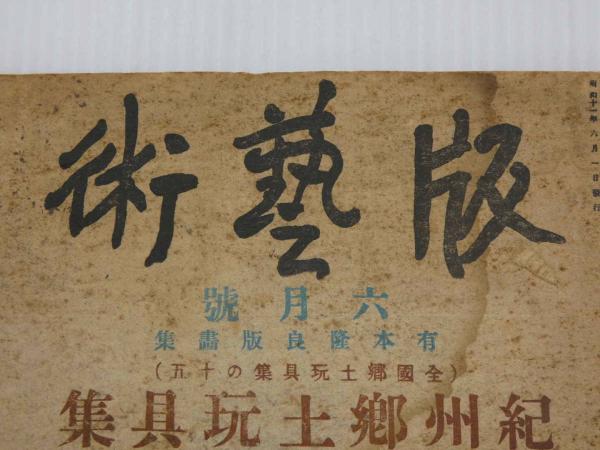 版藝術
昭和十一年六月一日發行
六月號
有本隆良版畵集
(全國鄉土玩具集の十五)
紀州鄉土玩具集